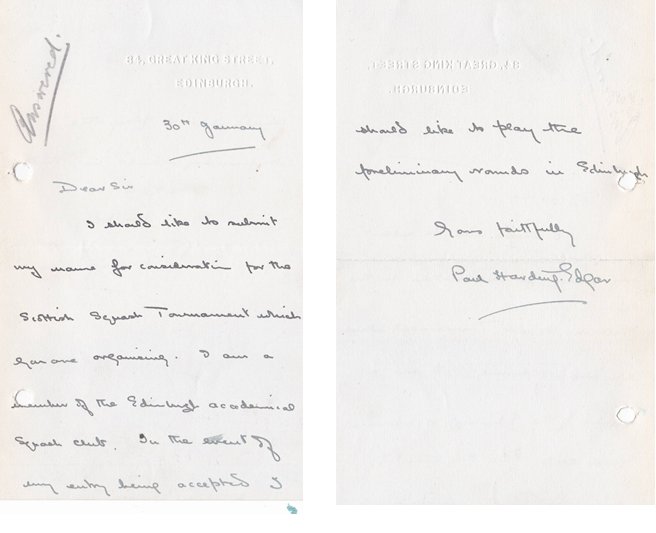 Answered.
84, GREAT KING STREET,
EDINBURGH.
30th January
Dear Sir
I should like to submit
my name for consideration for the
Scottish Squash Tournament which
you are organising. I am a
member of the Edinburgh academical
Squash club. In the event of
my entry being accepted I
84, GREAT KING STREET,
EDINBURGH.
should like to play the
preliminary rounds in Edinburgh
Yours faithfully
Paul Harding-Edgar